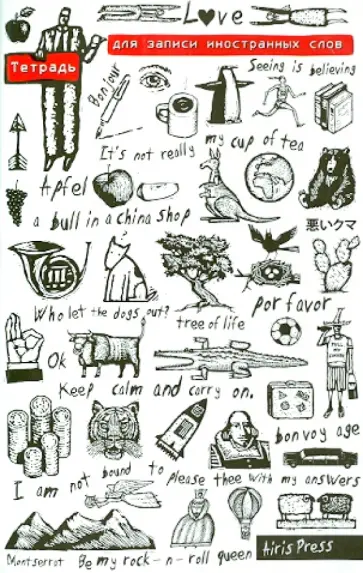 Love
для записи иностранных слов
Тетрадь
Bonjour
Seeing is believing
It's not really my cup of tea
Apfel
a bull in a china shop
悪いクマ
Who let the dogs out?
tree of life
por favor
Ok
Keep calm and carry on.
bon voy age
I am not bound to please thee with my answers
Montserrat
Be my rock-n-roll queen
Airis Press